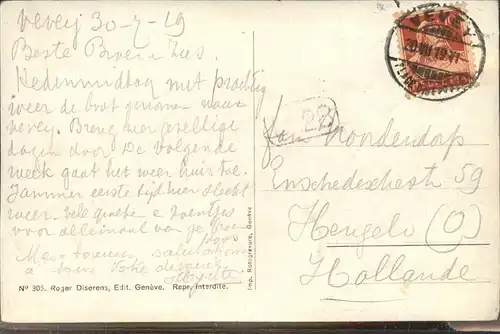 Vevey 30-7-19
Beste Broer en Zus
Hedenmiddag met prachtig
weer de boot genomen naar
Vevey. Breng hier gezellige
dagen door De volgende
week gaat het weer huis toe.
Jammer eerste tijd hier slecht
weer. Vele groeten & zoentjes
voor allemaal van je
Meilleures salutations
à tous Votre
Nº 305. Roger Diserens, Edit. Genève. Repr. Interdite.
Imp. Rotogravure, Genève
VEVEY
22
Fam Nordendorp
Enschedeschestr 59
Hengelo (O)
Hollande